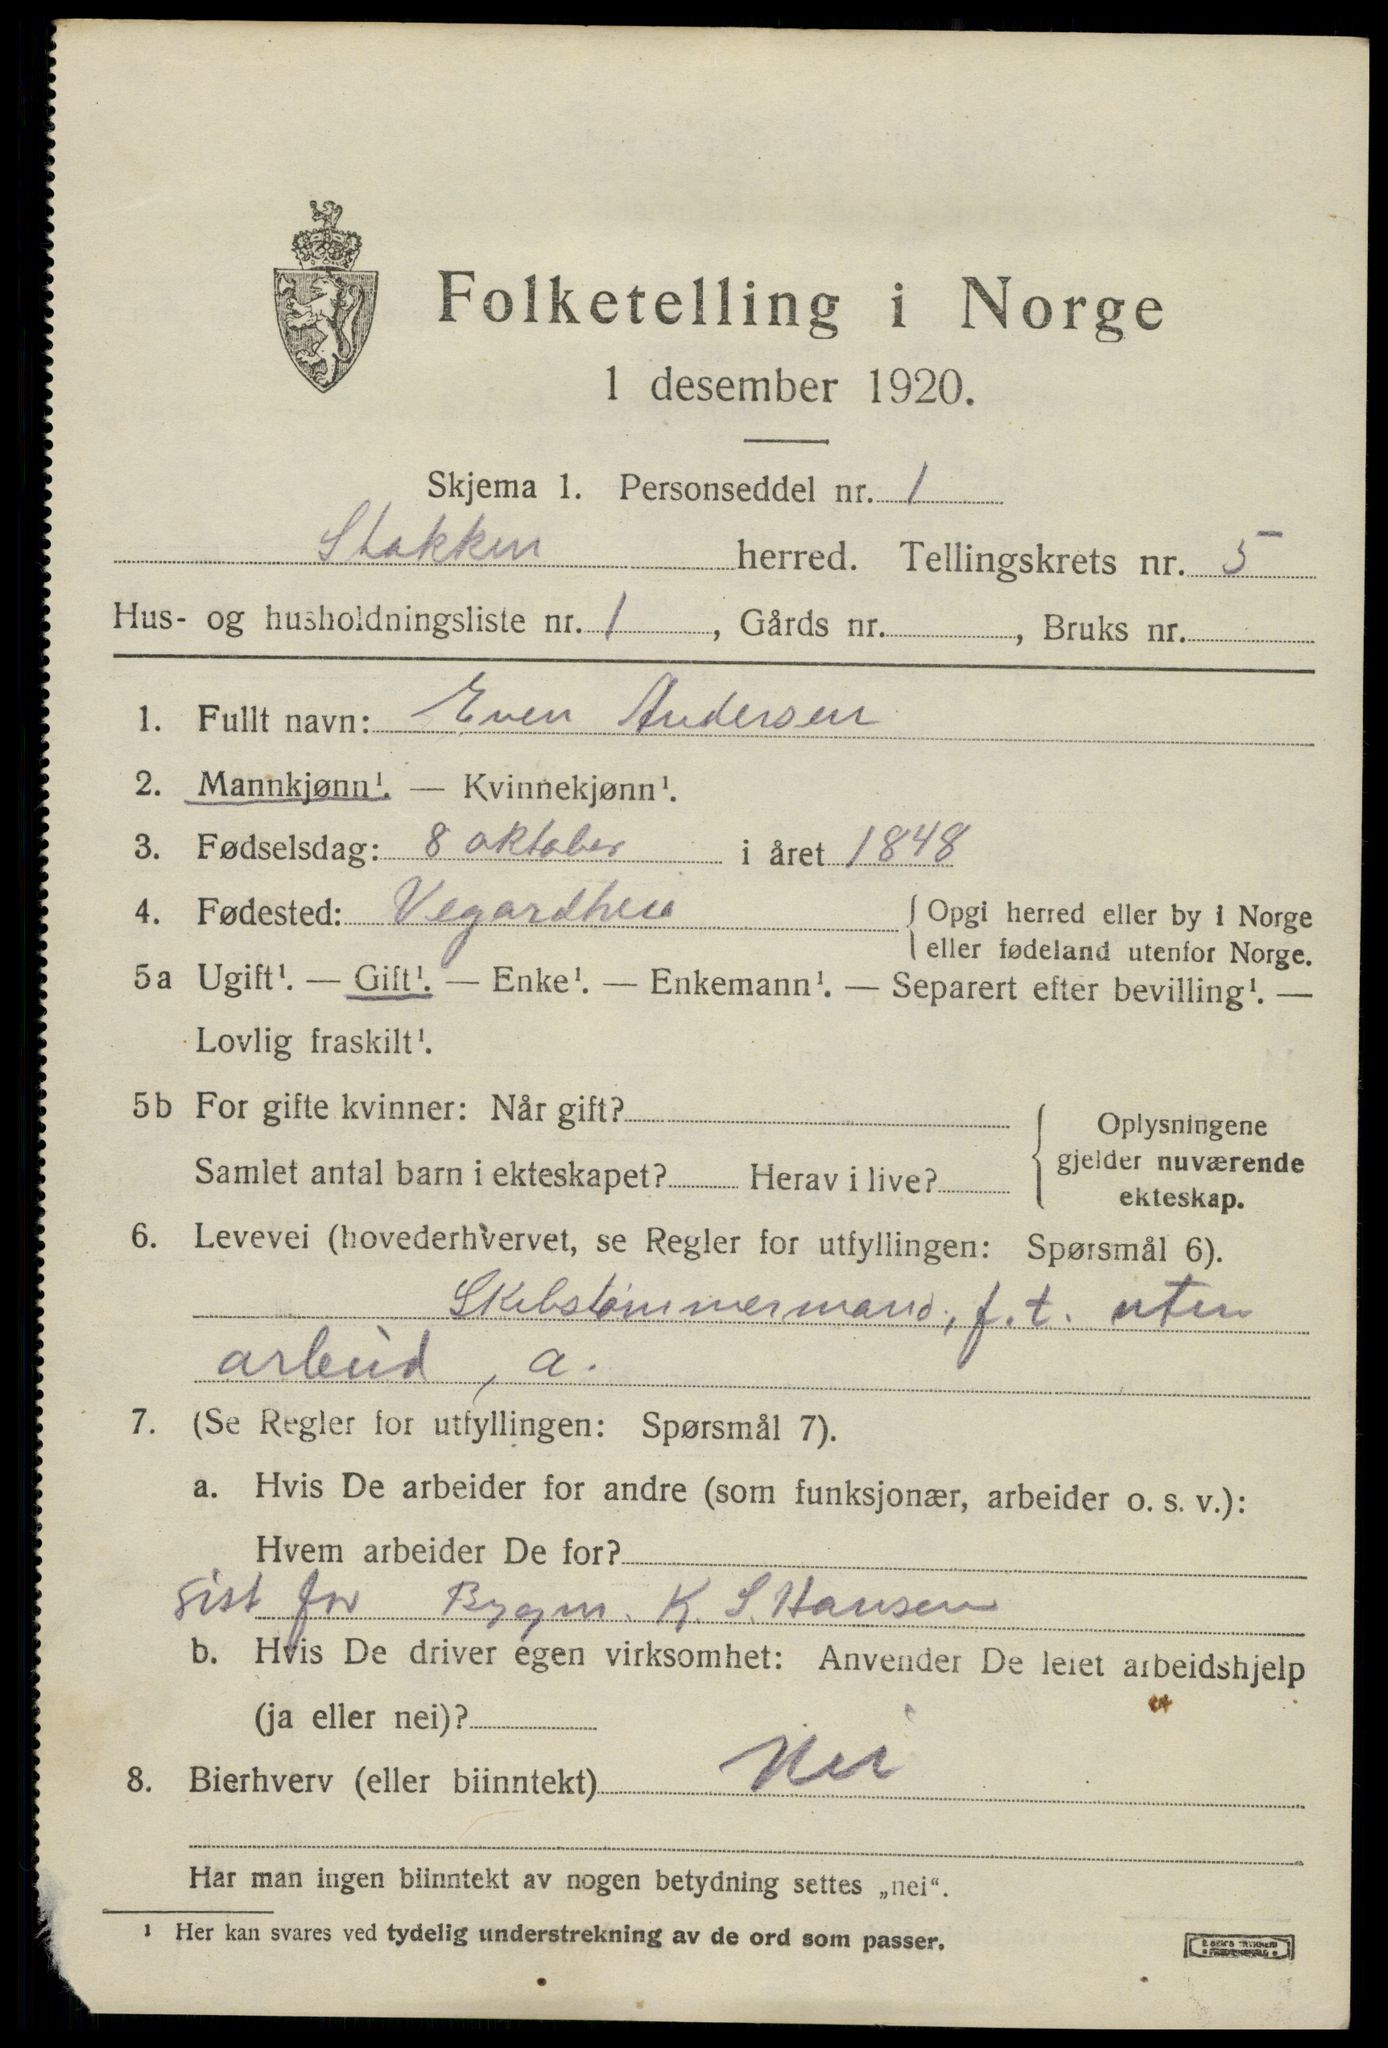 Folketelling i Norge
1 desember 1920.
Skjema 1. Personseddel nr. 1
Stokken herred. Tellingskrets nr. 5
Hus- og husholdningsliste nr. 1, Gårds nr. , Bruks nr.
1. Fullt navn: Even Andersen
2. Mannkjønn¹. — Kvinnekjønn¹.
3. Fødselsdag: 8 oktober i året 1848
4. Fødested: Vegardsheia { Opgi herred eller by i Norge
eller fødeland utenfor Norge.
5a Ugift¹. — Gift¹. — Enke¹. — Enkemann¹. — Separert efter bevilling¹. —
Lovlig fraskilt¹.
5b For gifte kvinner: Når gift?
Samlet antal barn i ekteskapet? Herav i live?
{ Oplysningene
gjelder nuværende
ekteskap.
6. Levevei (hovederhvervet, se Regler for utfyllingen: Spørsmål 6).
Skibstømmermand, f.t. uten
arbeid, a.
7. (Se Regler for utfyllingen: Spørsmål 7).
a. Hvis De arbeider for andre (som funksjonær, arbeider o. s. v.):
Hvem arbeider De for?
sist for Bygm. K. S. Hansen
b. Hvis De driver egen virksomhet: Anvender De leiet arbeidshjelp
(ja eller nei)?
8. Bierhverv (eller biinntekt) Nei
Har man ingen biinntekt av nogen betydning settes „nei“.
¹ Her kan svares ved tydelig understrekning av de ord som passer.